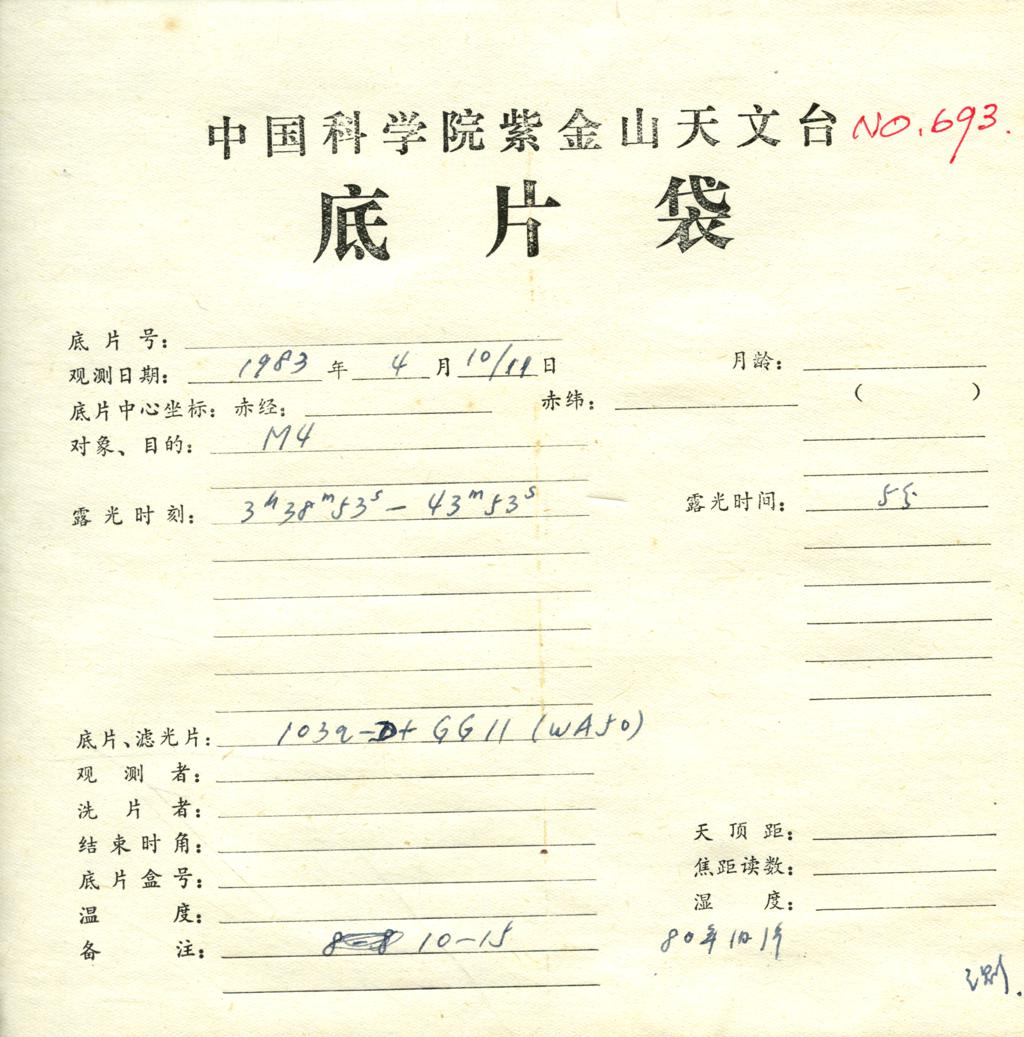 中国科学院紫金山天文台 NO.693.
底片袋
底片号：
观测日期： 1983 年 4 月 10/11 日 月龄：
底片中心坐标：赤经： 赤纬： ( )
对象、目的： M4
露光时刻： 3h38m53s — 43m53s 露光时间： 55
底片、滤光片： 103a-D+ GG11 (WA50)
观测者：
洗片者：
结束时角： 天顶距：
底片盒号： 焦距读数：
温度： 湿度：
备注： 10-15 80年